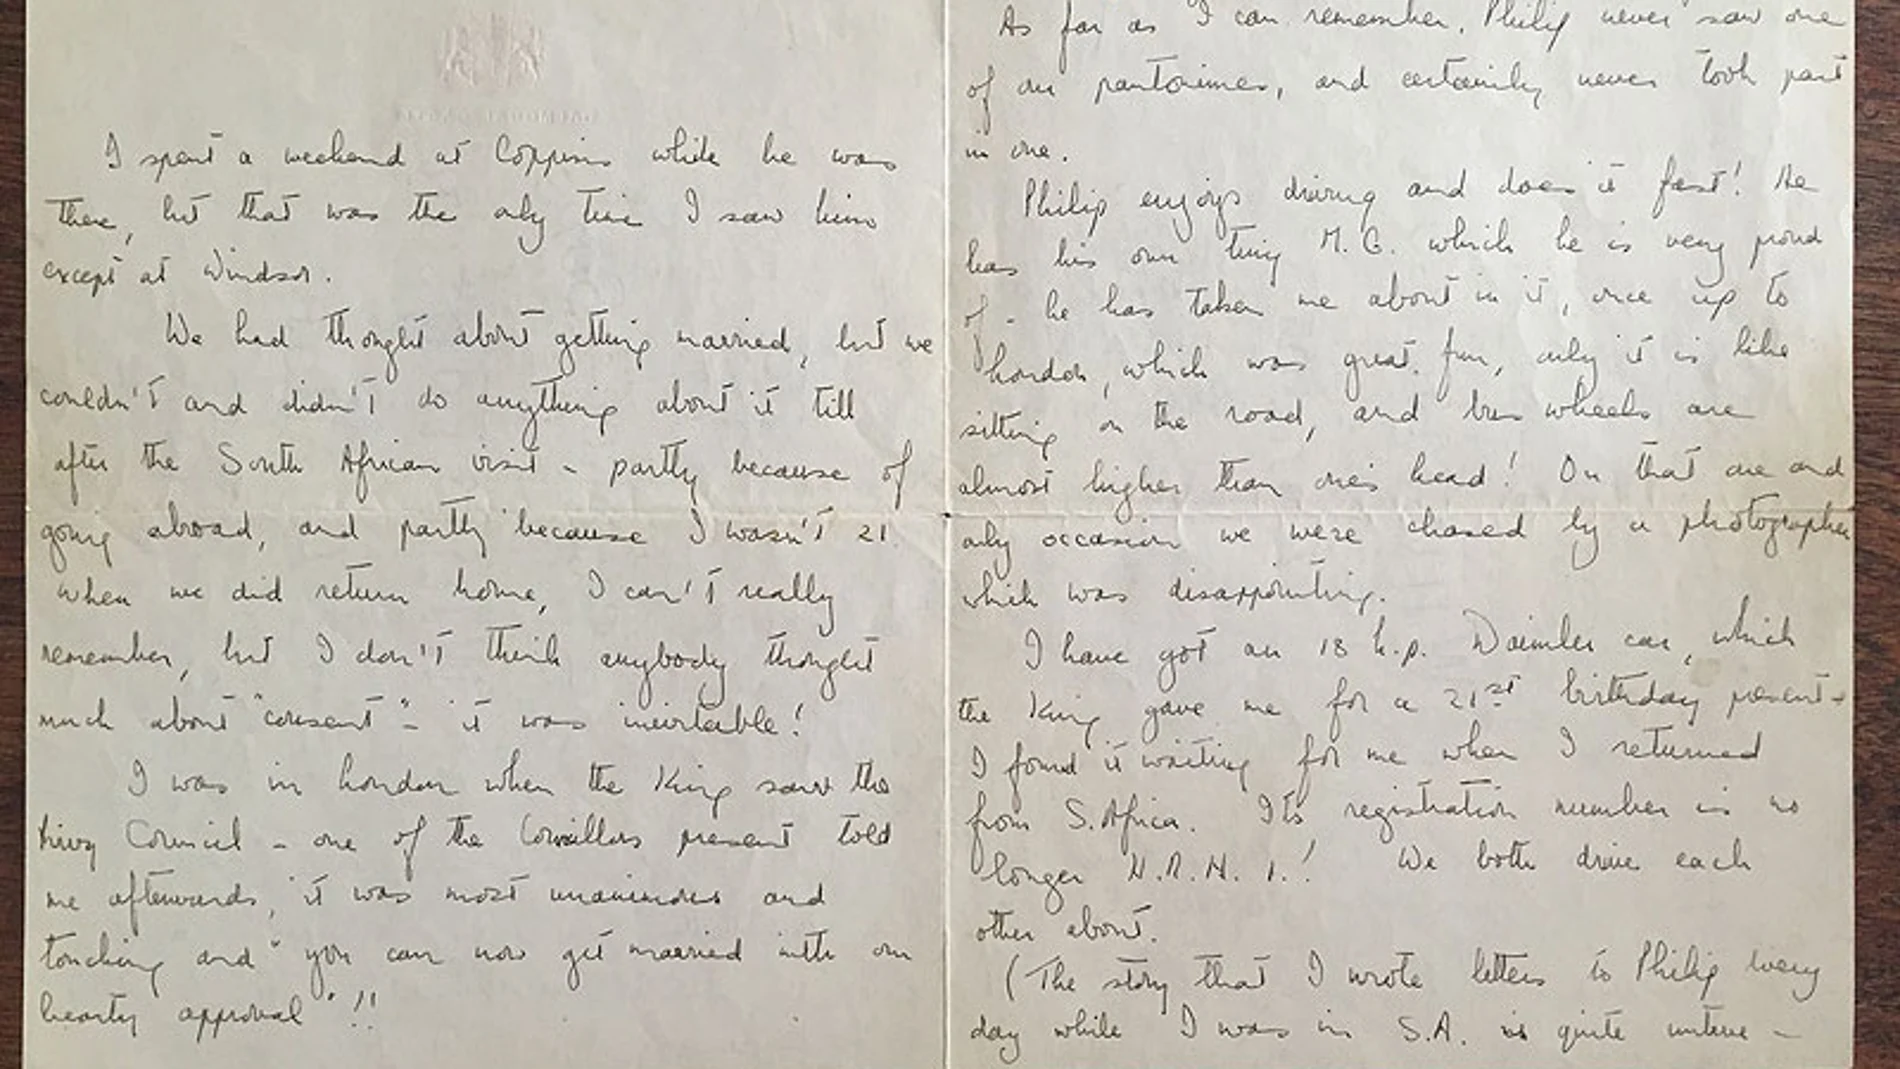 I spent a weekend at Coppins while he was
there, but that was the only time I saw him
except at Windsor.
We had thought about getting married, but we
couldn't and didn't do anything about it till
after the South African visit - partly because of
going abroad, and partly because I wasn't 21
when we did return home, I can't really
remember, but I don't think anybody thought
much about "consent" - it was inevitable!
I was in London when the King saw the
Privy Council - one of the Councillors present told
me afterwards, "it was most unanimous and
touching and "you can now get married with our
hearty approval"!!
As far as I can remember, Philip never saw one
of our pantomimes, and certainly never took part
in one.
Philip enjoys driving and does it fast! He
has his own tiny M.G. which he is very proud
of - he has taken me about in it, once up to
London, which was great fun, only it is like
sitting on the road, and bus wheels are
almost higher than one's head! On that one and
only occasion we were chased by a photographer
which was disappointing.
I have got an 18 h.p. Daimler car, which
the King gave me for a 21st birthday present -
I found it waiting for me when I returned
from S. Africa. Its registration number is no
longer H.R.H. 1.! We both drive each
other about.
(The story that I wrote letters to Philip every
day while I was in S.A. is quite untrue -